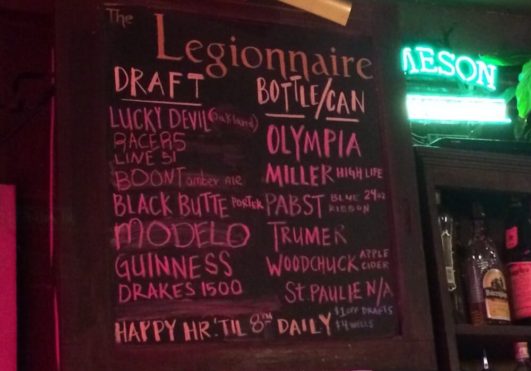 The Legionnaire
DRAFT
LUCKY DEVIL (Oakland)
RACER 5
LINE 51
BOONT amber ALE
BLACK BUTTE PORTER
MODELO
GUINNESS
DRAKES 1500
BOTTLE/CAN
OLYMPIA
MILLER HIGH LIFE
PABST BLUE RIBBON 24oz
TRUMER
WOODCHUCK APPLE CIDER
ST. PAULIE N/A
HAPPY HR. 'TIL 8PM DAILY
$1 OFF DRAFTS
$4 WELLS
MESON